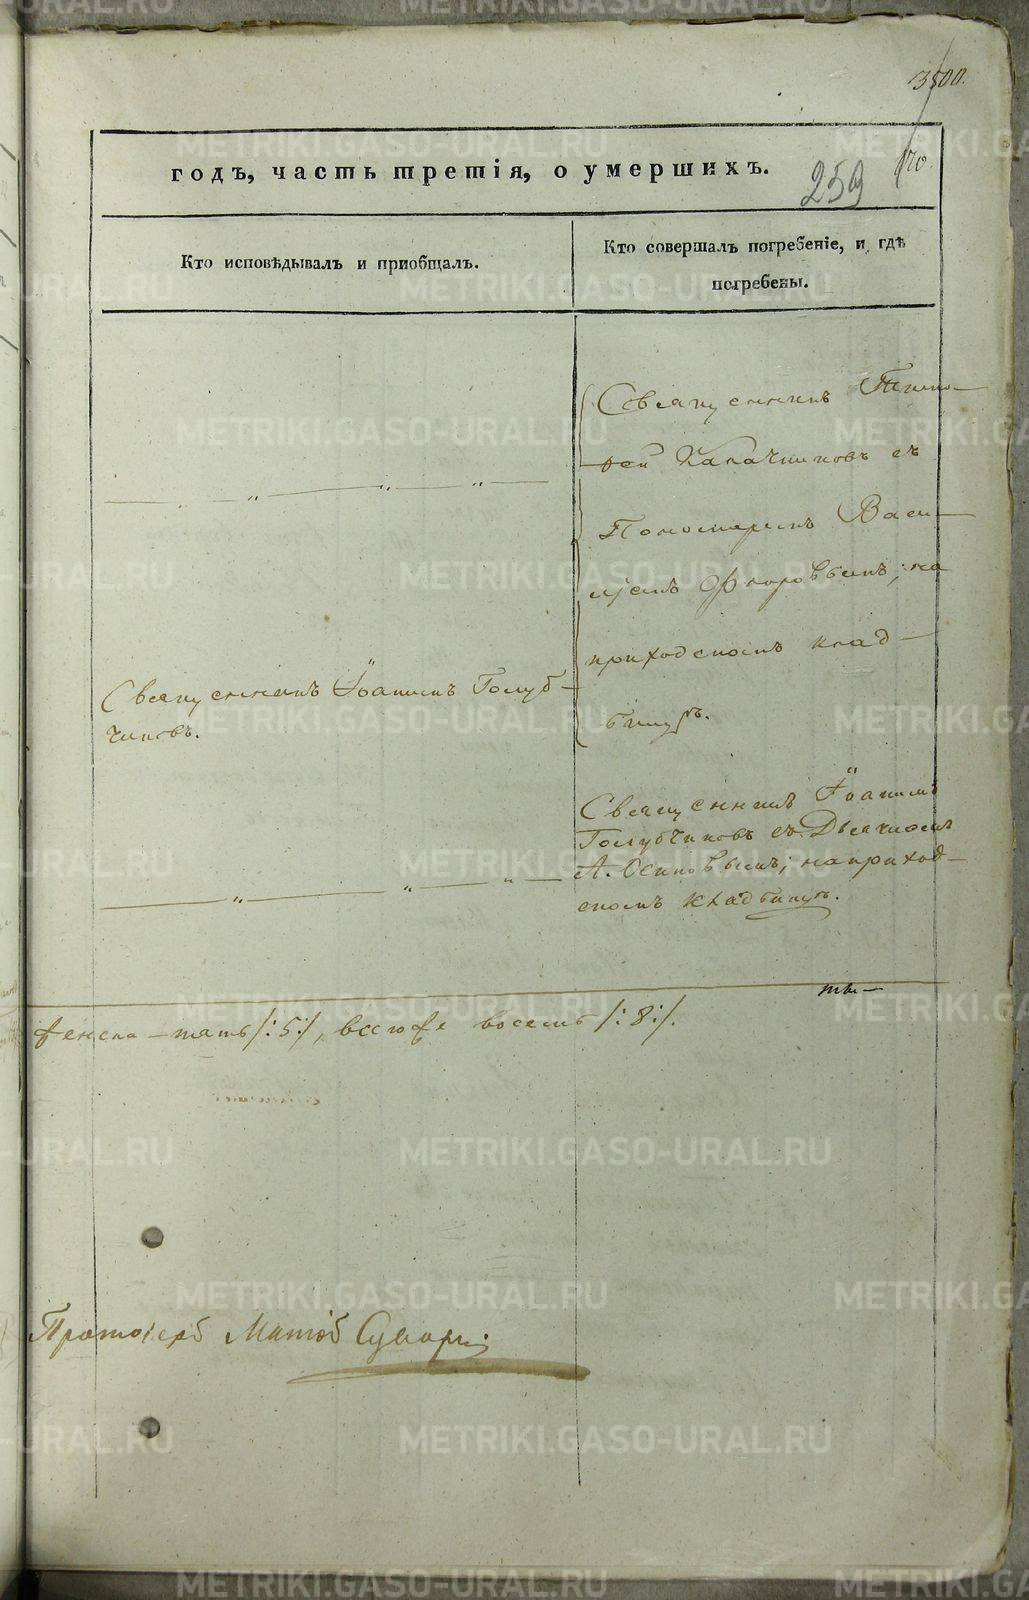 3500.
170
годъ, часть третія, о умершихъ.
259
Кто исповѣдывалъ и приобщалъ.
Кто совершалъ погребеніе, и гдѣ
погребены.
Священникъ Тимо-
фей Калачниковъ съ
Пономаремъ Васи-
ліемъ Флоровымъ; на
приходскомъ клад-
бищѣ.
Священникъ Іоаннъ Голуб-
чиковъ.
Священникъ Іоаннъ
Голубчиковъ съ Дьячкомъ
А. Осиповымъ; на приход-
скомъ кладбищѣ.
женска – пять /:5:/, всего же восемь /:8:/.
Протоіерей
METRIKI.GASO-URAL.RU